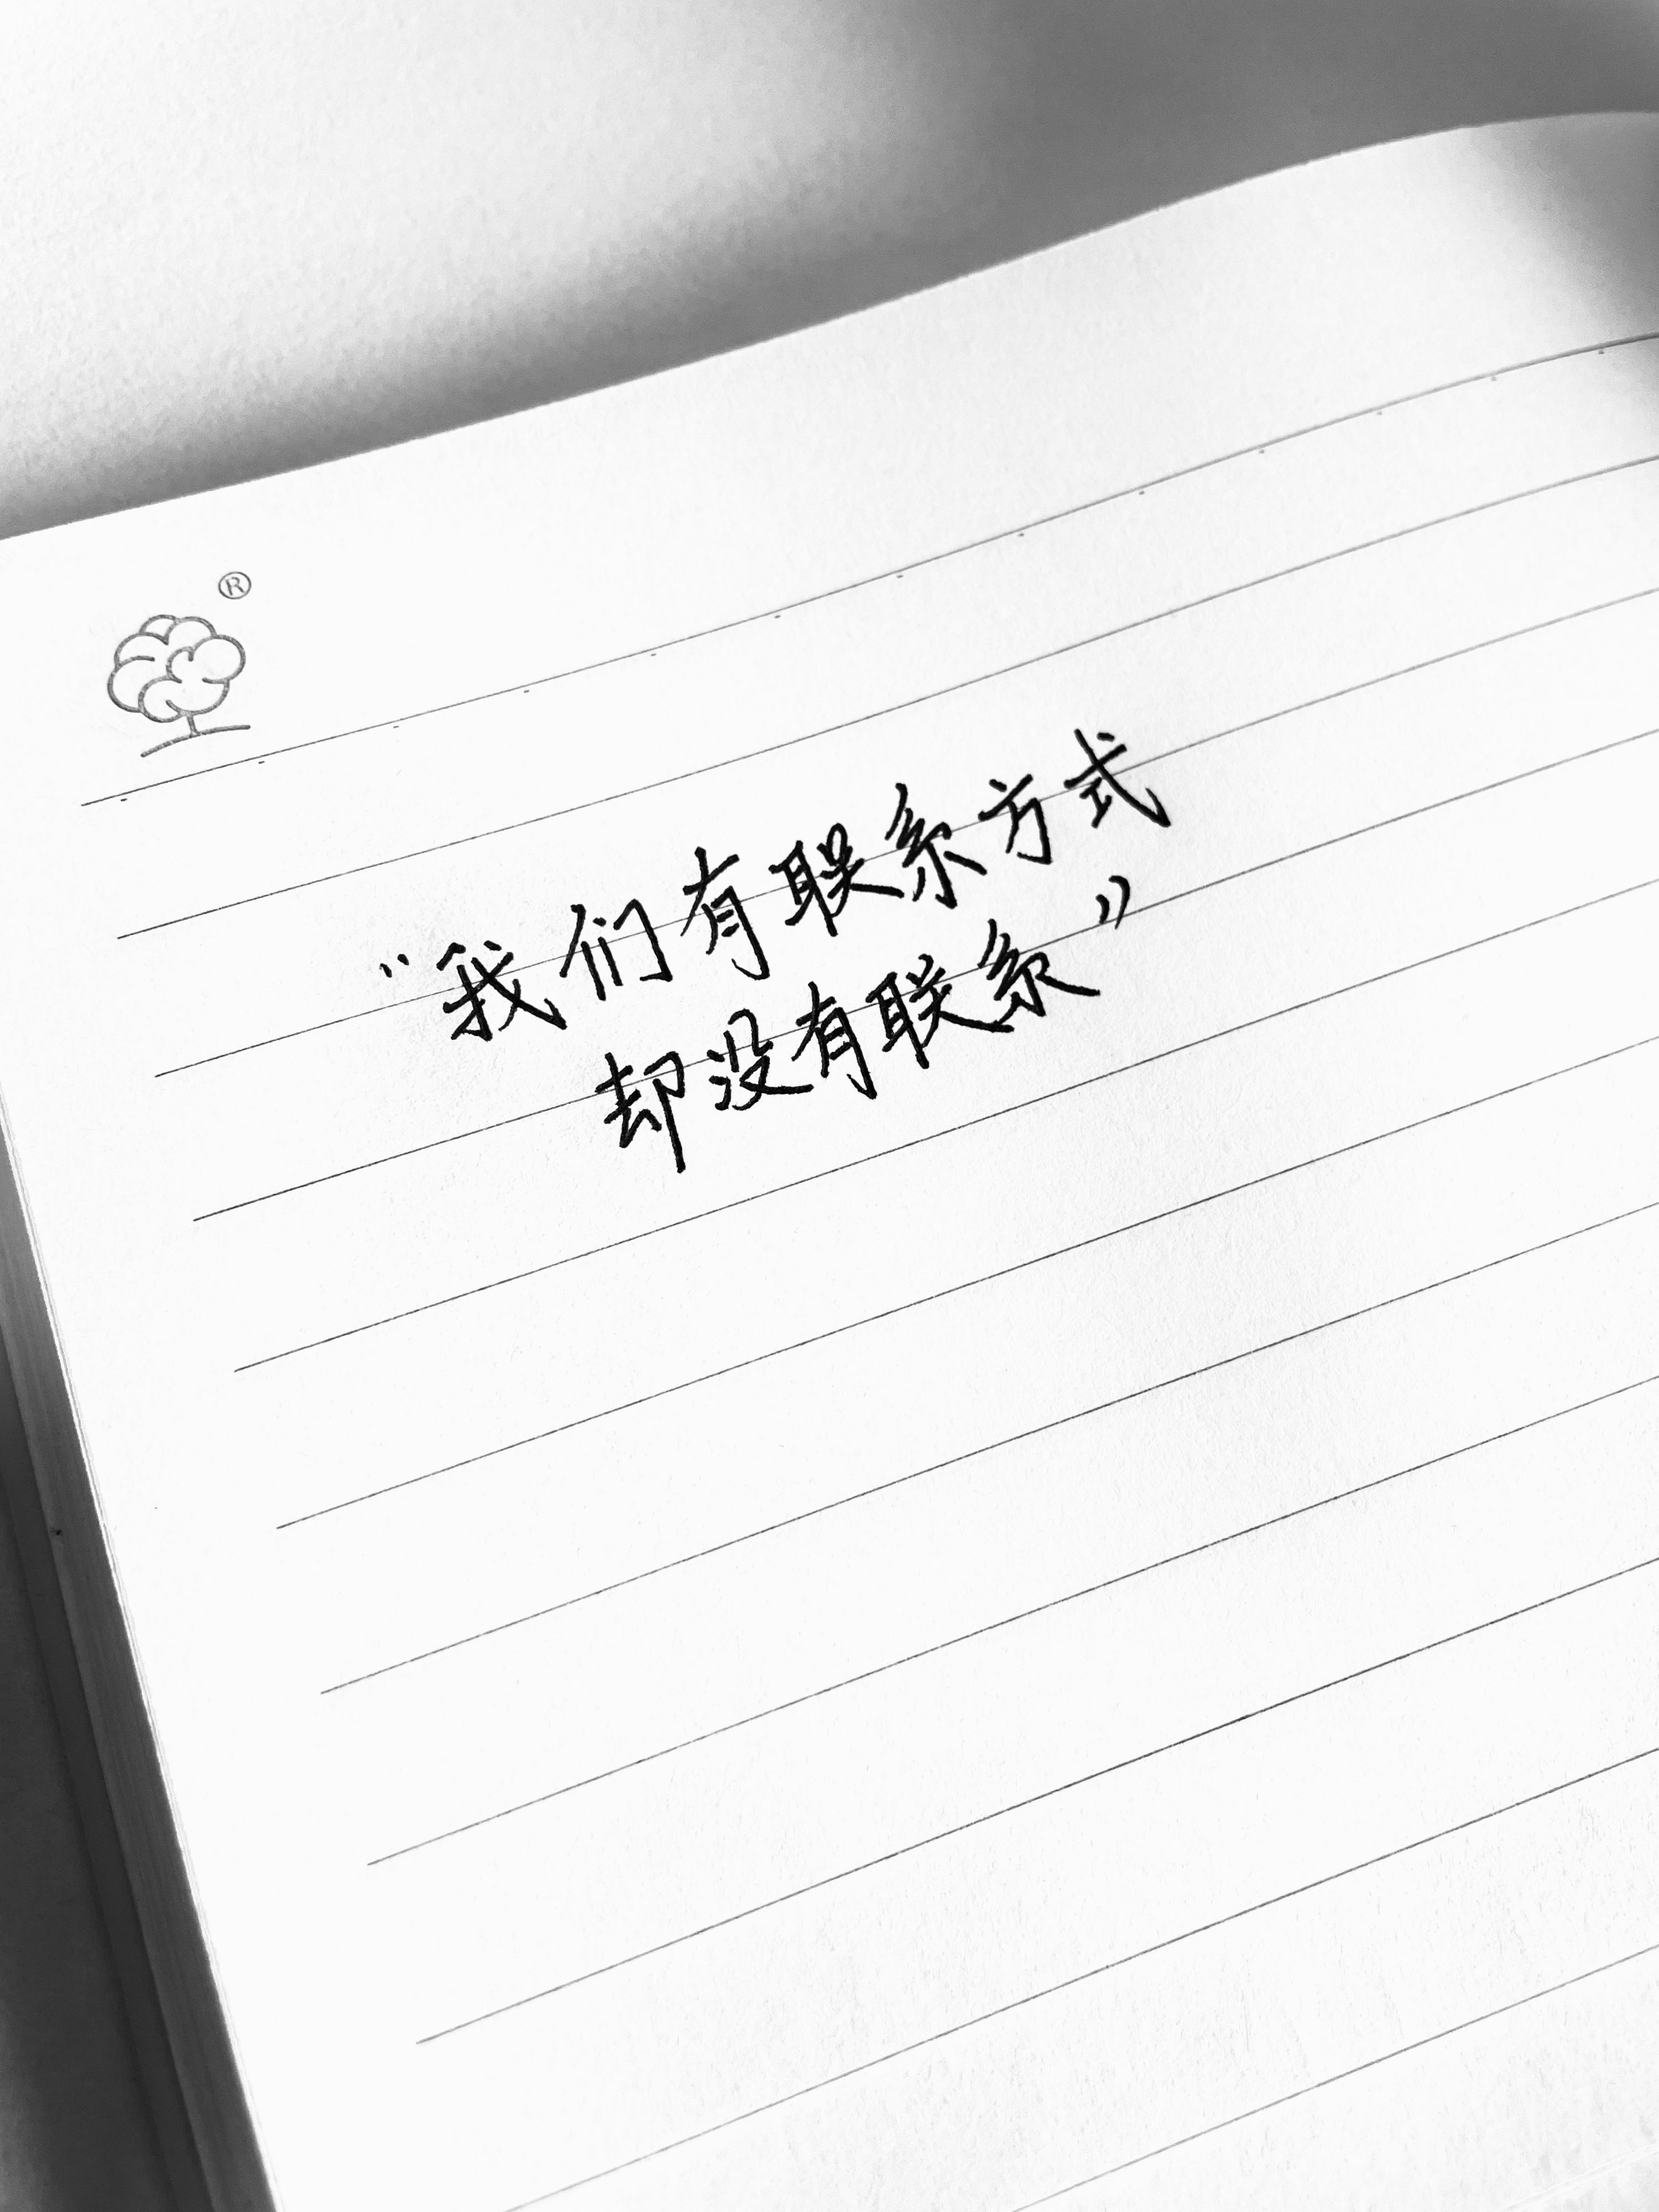 ®
“我们有联系方式
却没有联系”